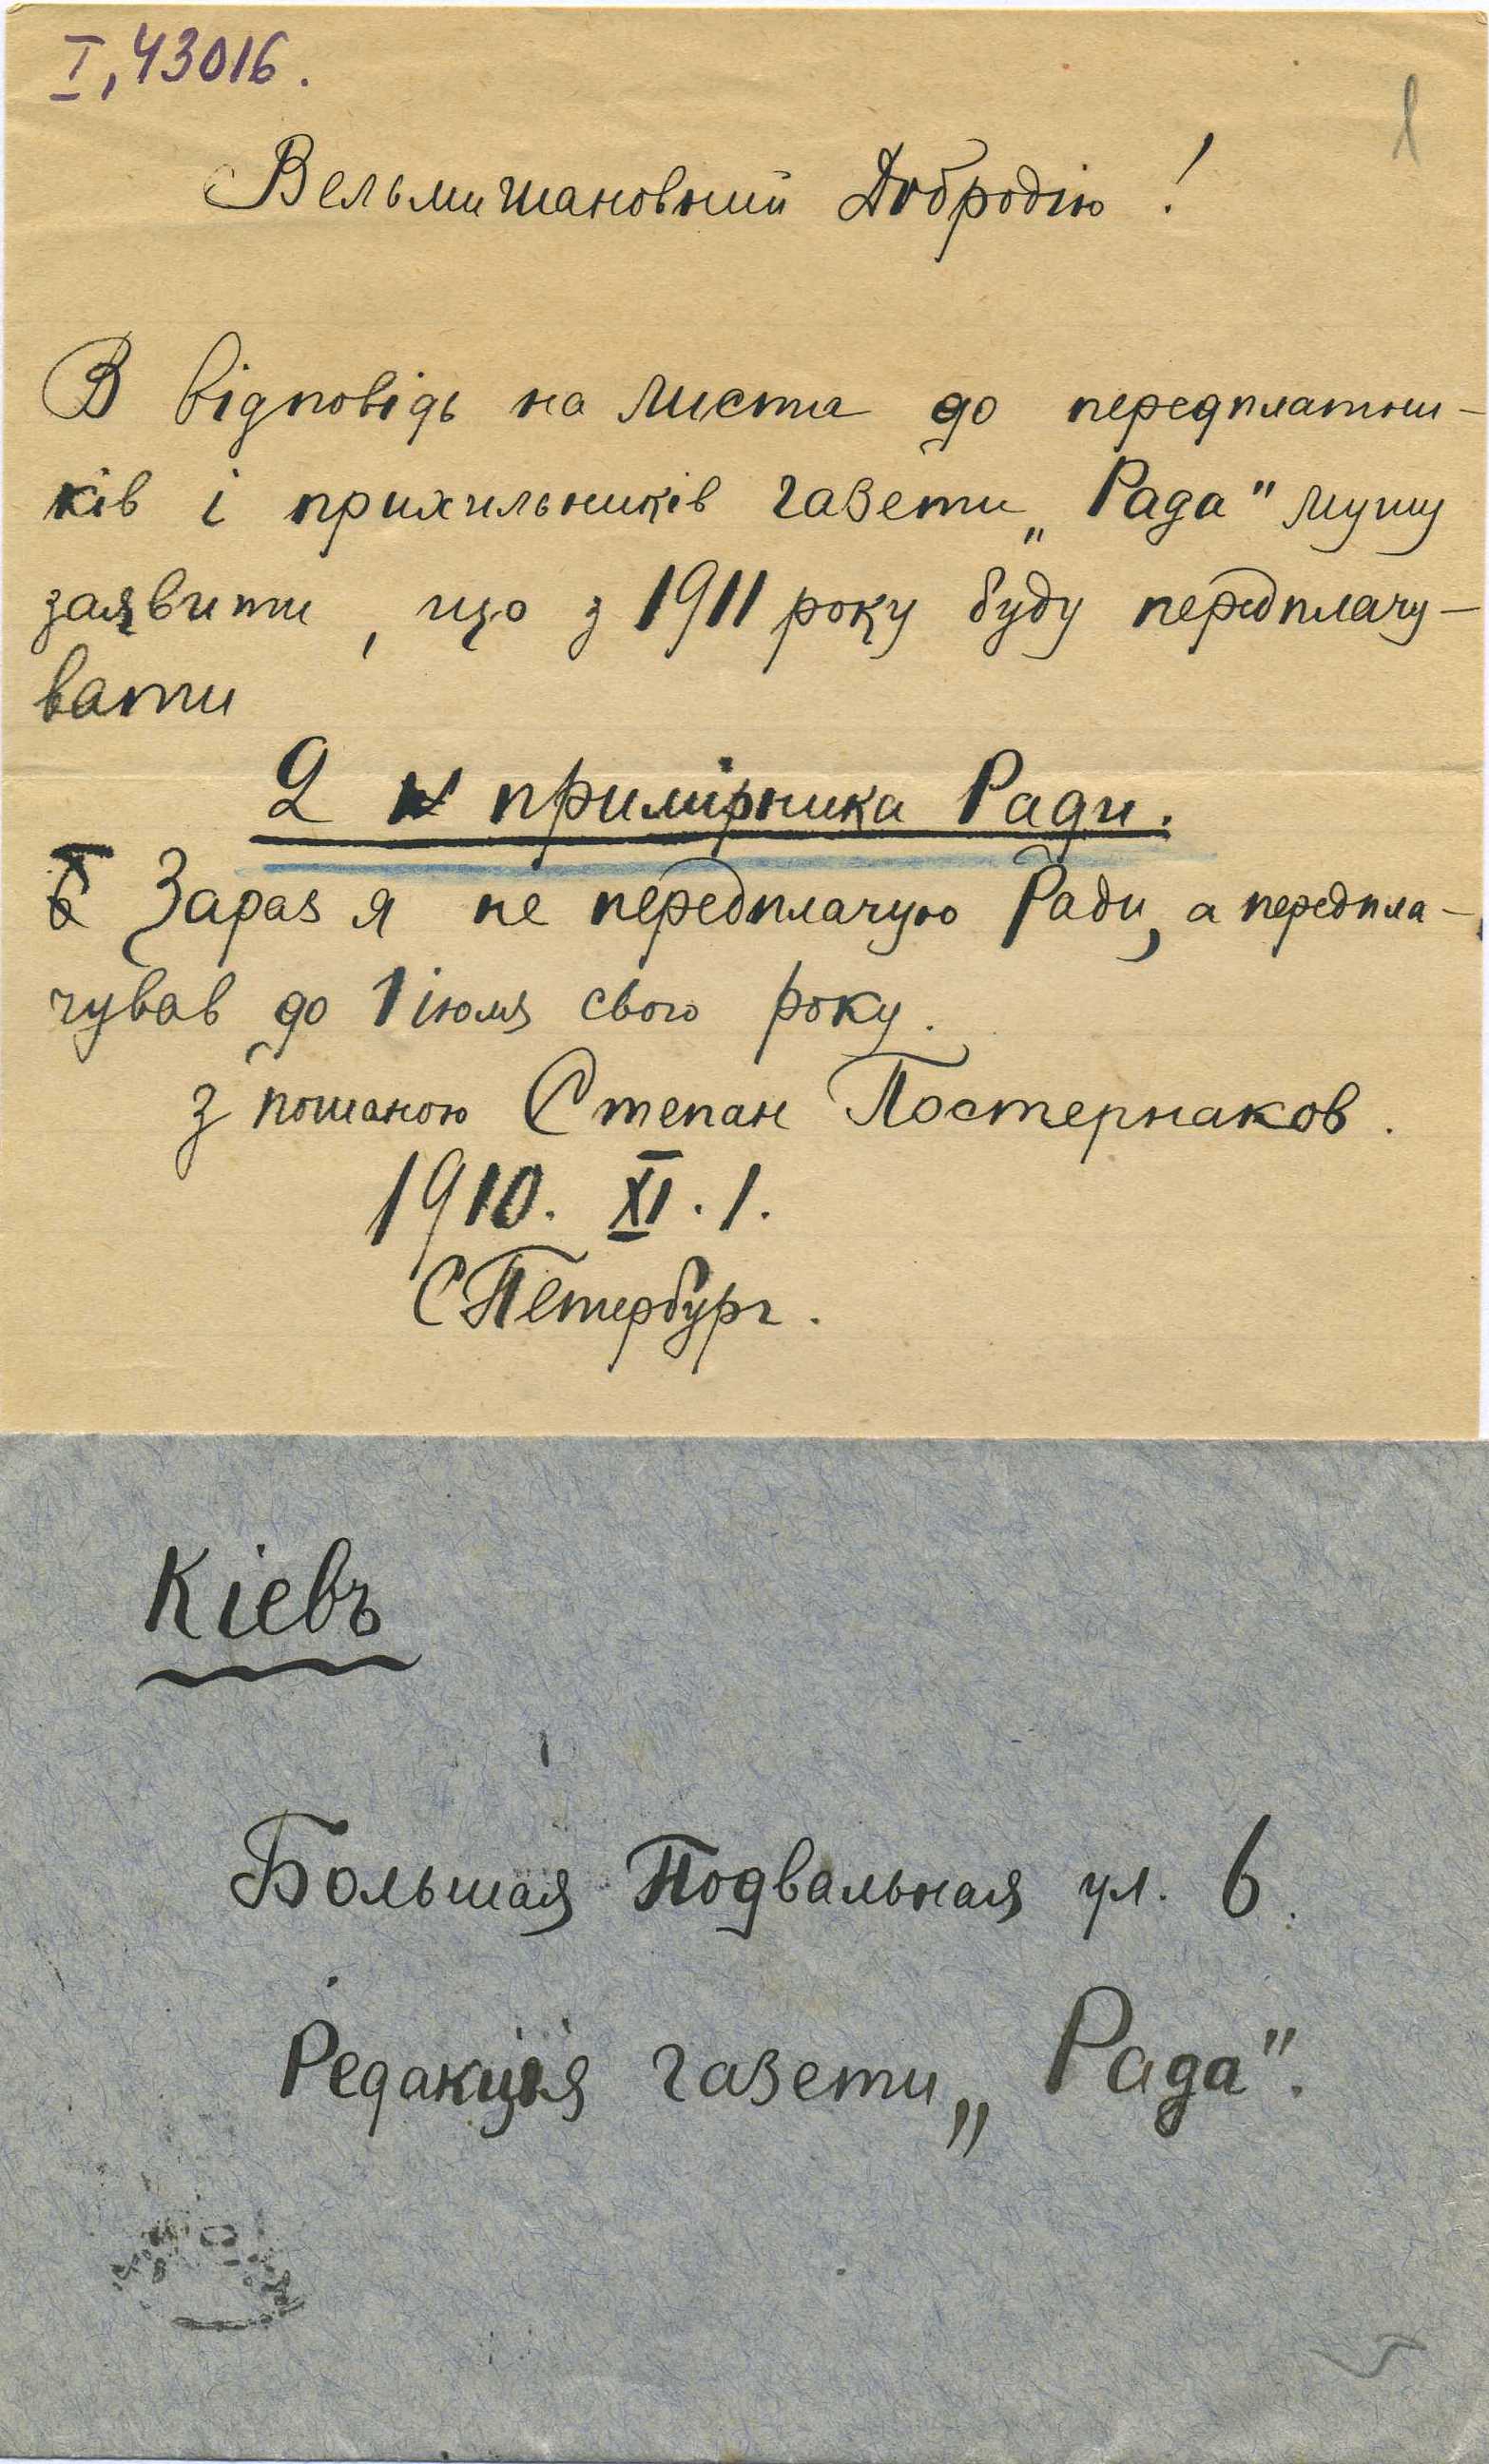 I, 43016.
1
Вельмишановний Добродію!
В відповідь на листа до передплатни-
ків і прихильників газети „Рада" мушу
заявити, що з 1911 року буду передплачу-
вати
2 примірника Ради.
Зараз я не передплачую Ради, а передпла-
чував до 1 іюля свого року.
З пошаною Степан Постернаков.
1910. XI. 1.
СПетербург.
Кіевъ
Большая Подвальная ул. 6.
Редакція газети „Рада".